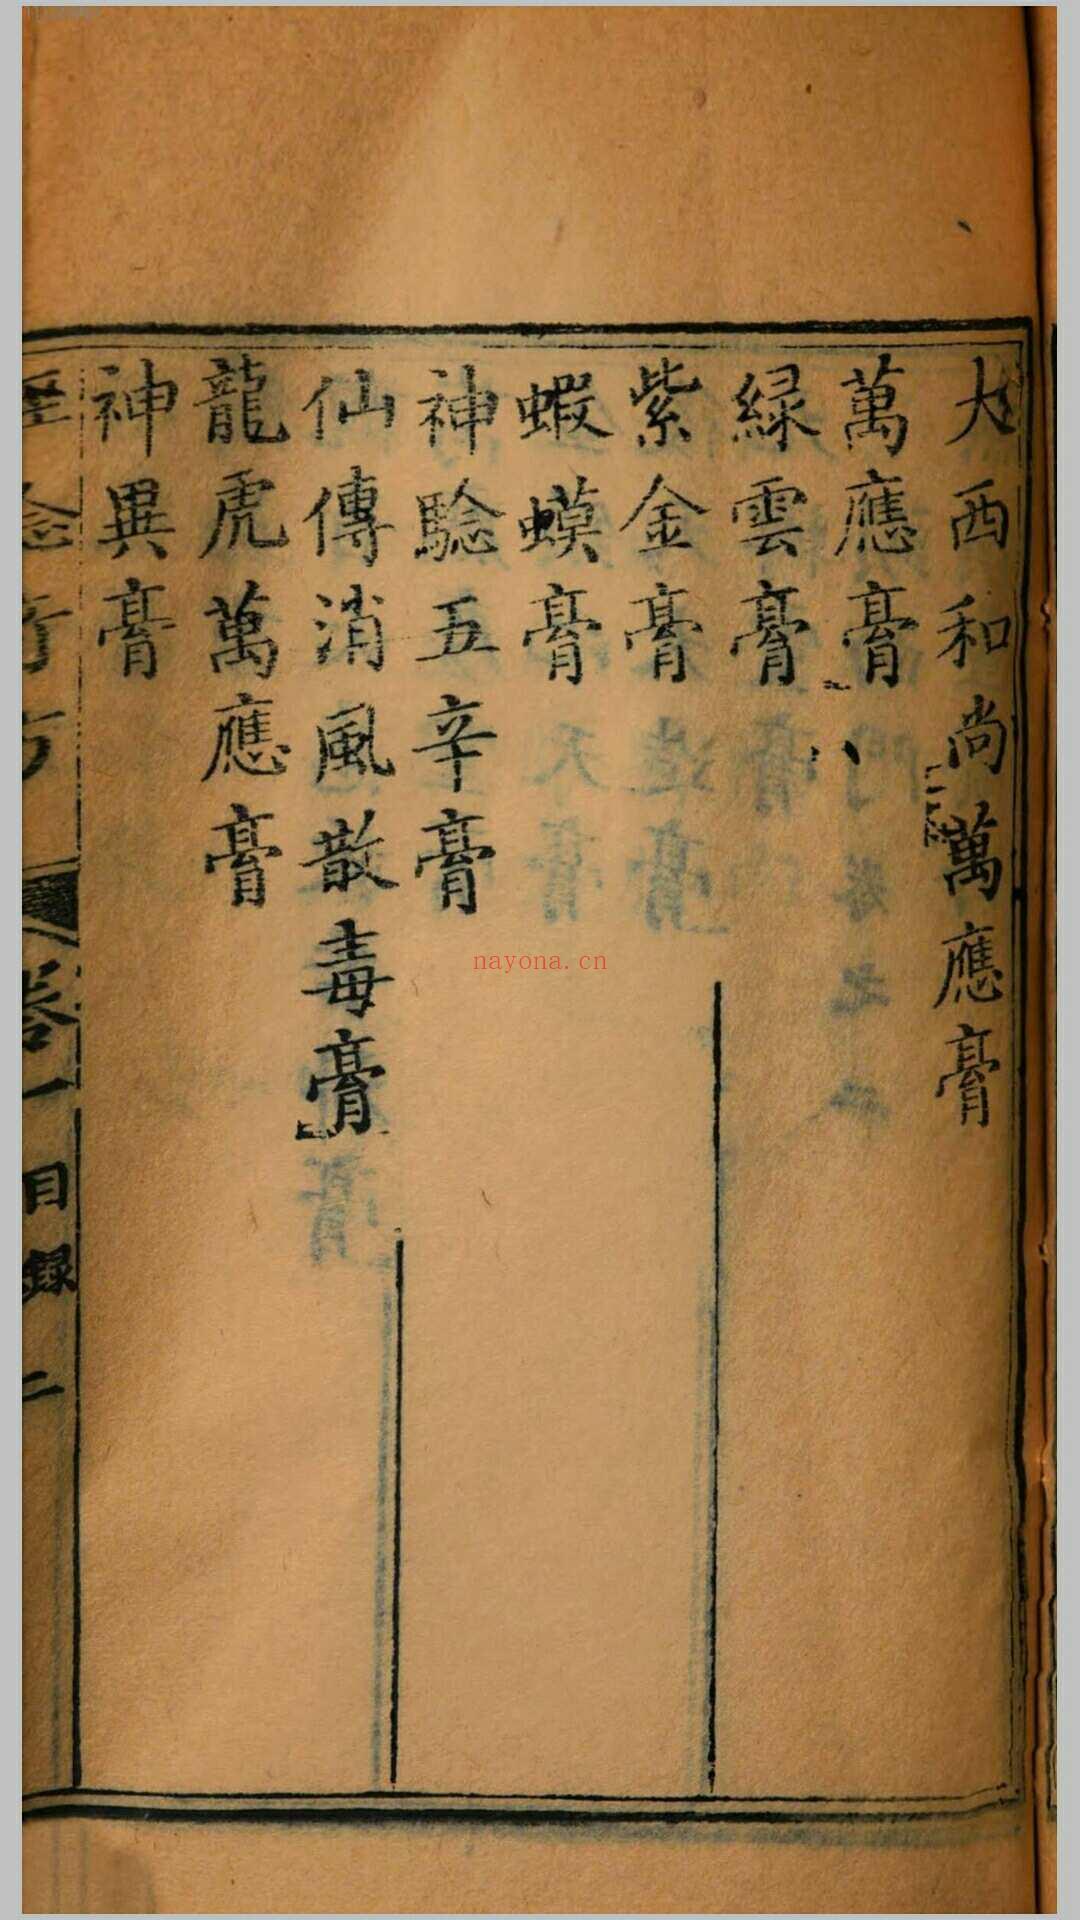 大西和尚萬應膏
萬應膏
緑雲膏
紫金膏
蝦蟆膏
神驗五辛膏
仙傳消風散毒膏
龍虎萬應膏
神異膏
卷一目録 二
nayona.cn